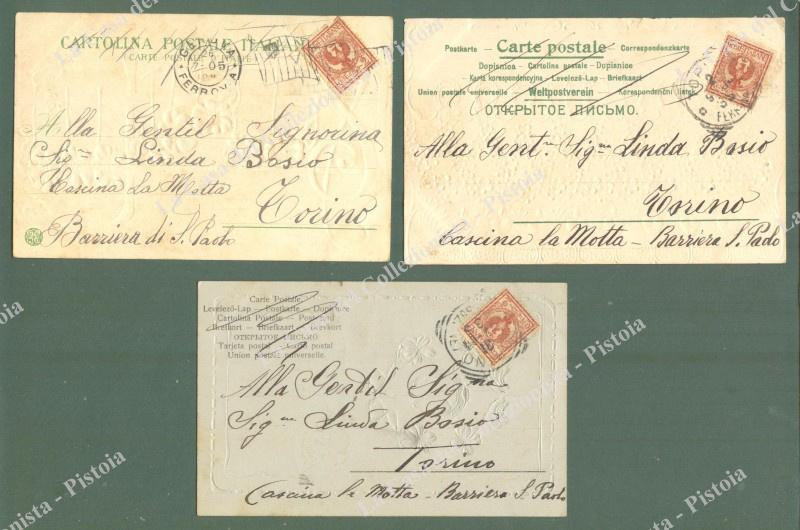 CARTOLINA POSTALE ITALIANA
Alla Gentil Signorina
Sig.na Linda Bosio
Cascina La Motta
Torino
Barriera di S. Paolo
Postkarte - Carte postale - Correspondenzkarte
Dopisnica - Cartolina postale - Dopisnice
Karta korespondencyjna - Levelező-Lap - Briefkaart
Union postale universelle - Weltpostverein - Korespondenční lístek
ОТКРЫТОЕ ПИСЬМО.
Alla Gent.ma Sig.na Linda Bosio
Torino
Cascina la Motta - Barriera S. Paolo
Carte Postale.
Levelező-Lap - Postkarte - Dopisnice
Cartolina Postale - Post card
Brefkort - Briefkaart - Brevkort
ОТКРЫТОЕ ПИСЬМО
Tarjeta postal - Carta postal
Union postale universelle.
Alla Gentil Sig.na
Sig.na Linda Bosio
Torino
Cascina la Motta - Barriera S. Paolo